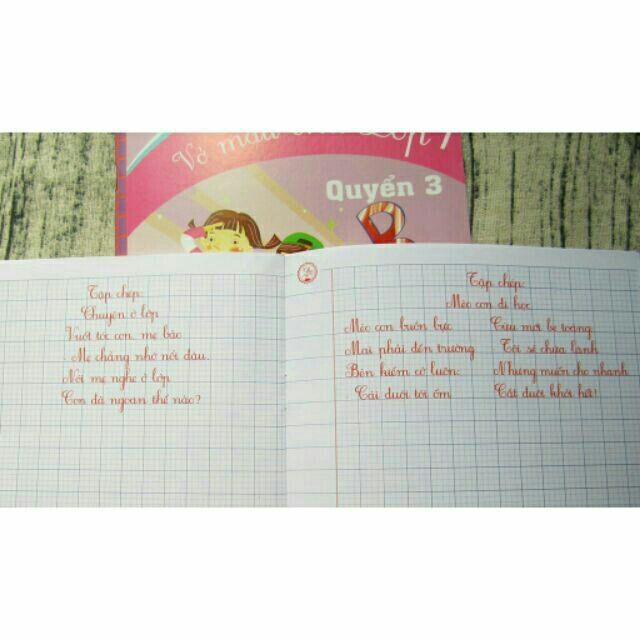 Vở mẫu chữ Lớp 1
Quyển 3
Tập chép:
Chuyện ở lớp
Vuốt tóc con, mẹ bảo
Mẹ chẳng nhớ nổi đâu.
Nói mẹ nghe ở lớp
Con đã ngoan thế nào?
Tập chép:
Mèo con đi học
Mèo con buồn bực
Mai phải đến trường
Bèn kiếm cớ luôn:
Cái đuôi tôi ốm
Cừu mới be toáng
Tôi sẽ chữa lành
Nhưng muốn cho nhanh
Cắt đuôi khỏi hết!